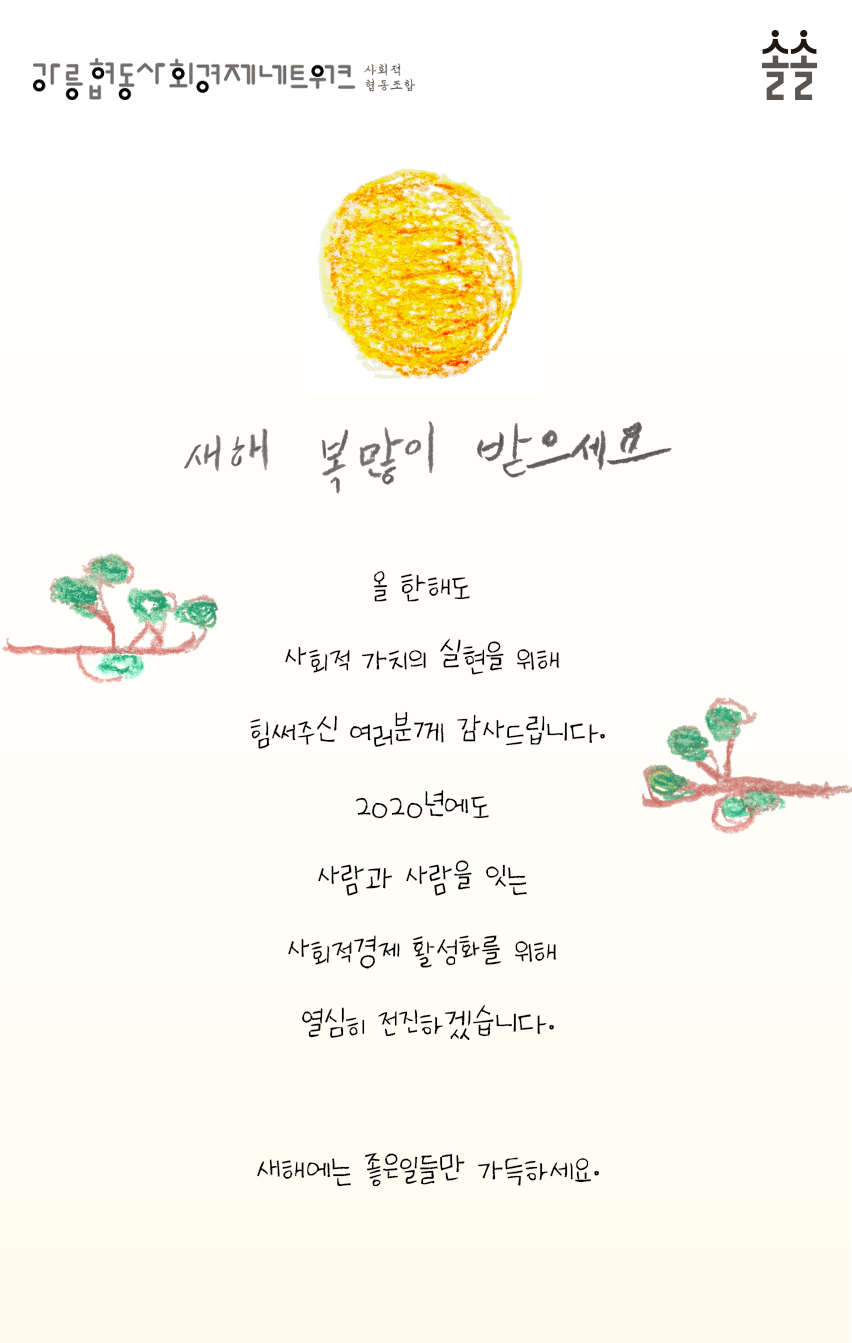 강릉협동사회경제네트워크
사회적
협동조합
솔솔
새해 복많이 받으세요
올 한해도
사회적 가치의 실현을 위해
힘써주신 여러분께 감사드립니다.
2020년에도
사람과 사람을 잇는
사회적경제 활성화를 위해
열심히 전진하겠습니다.
새해에는 좋은일들만 가득하세요.